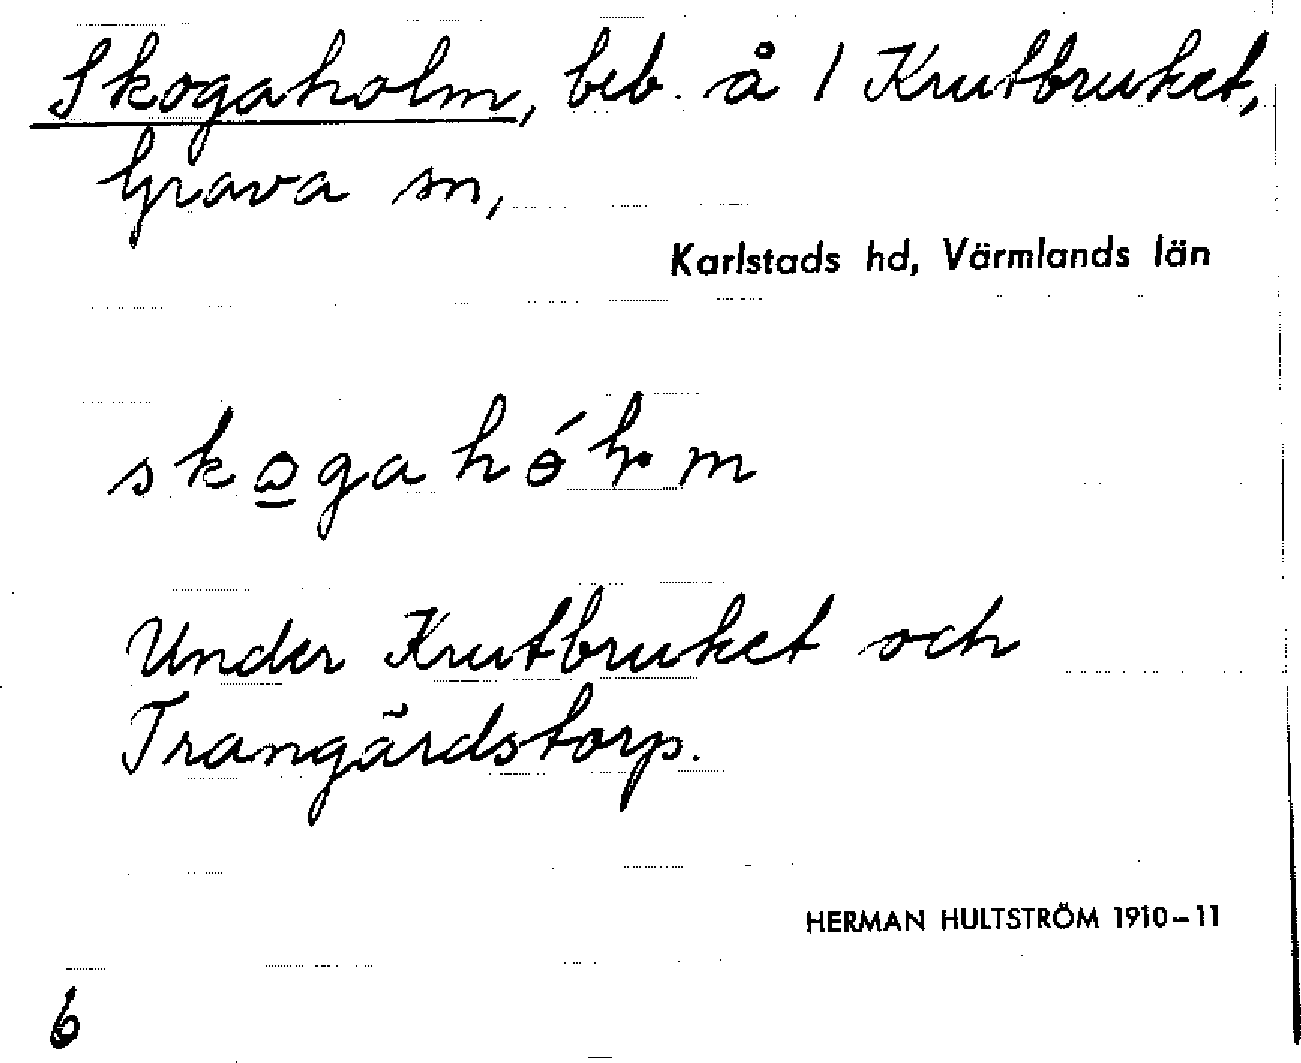 Skogaholm, beb. å 1 Krutbruket,
Grava sn,
Karlstads hd, Värmlands län
Under Krutbruket och
Trangärdstorp.
HERMAN HULTSTRÖM 1910–11
6